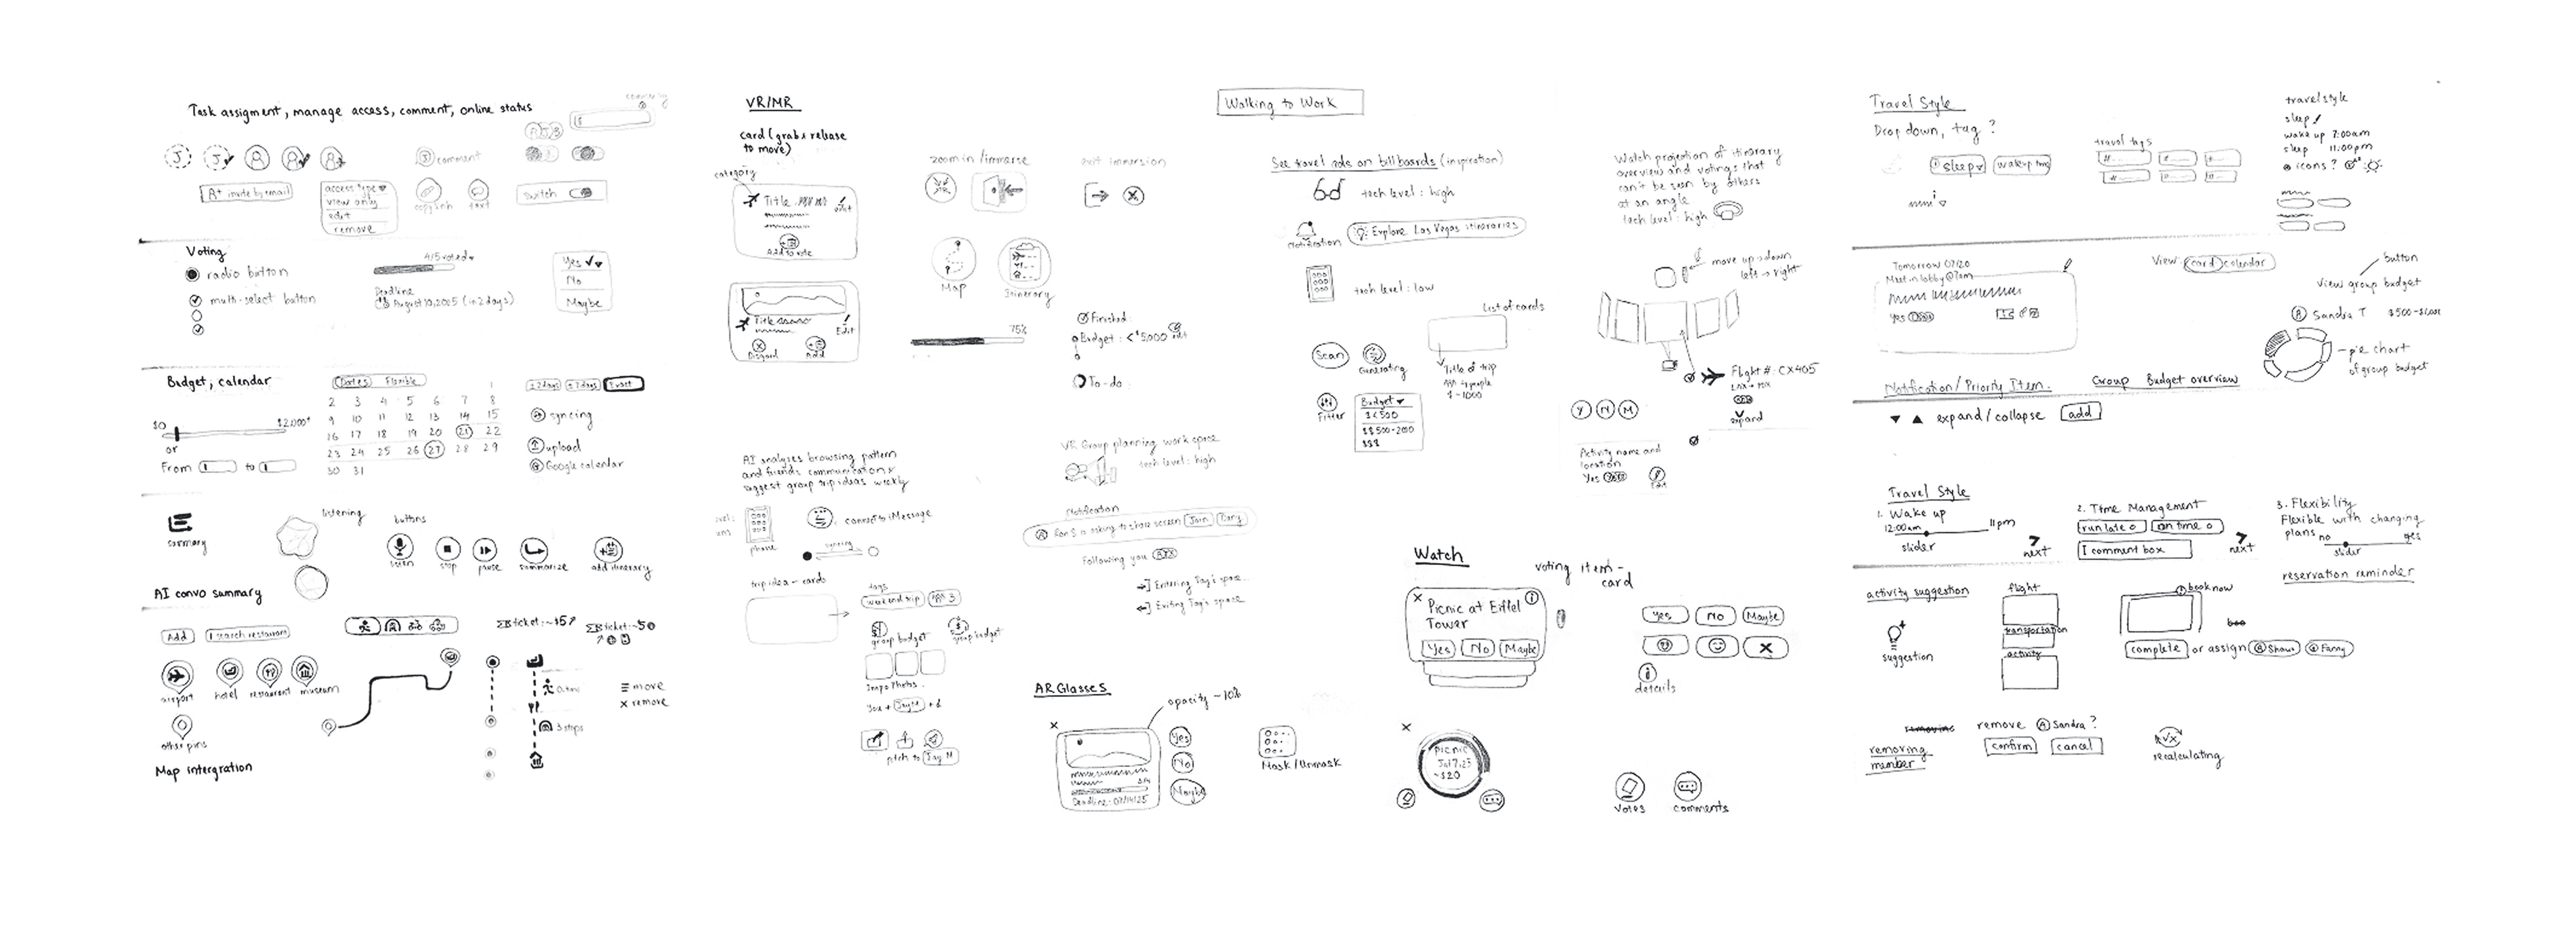 Task assigment, manage access, comment, online status
J J
comment
A+ invite by email
access type
view only
edit
remove
copy link
text
switch
Voting
radio button
multi-select button
4/5 voted
Deadline
August 10, 2025 (in 2 days)
Yes
No
Maybe
Budget, calendar
$0 $2,000+
or
From to
Dates Flexible
1
2 3 4 5 6 7 8
9 10 11 12 13 14 15
16 17 18 19 20 21 22
23 24 25 26 27 28 29
30 31
±2days ±7days Exact
syncing
upload
Google calendar
summary
listening
buttons
listen
stop
pause
summarize
add itinerary
AI convo summary
Add
search restaurant
ticket: ~$5
ticket: ~$0
airport
hotel
restaurant
museum
other pins
3 stops
move
x remove
Map intergration
VR/MR
card (grab & release
to move)
category
Title
edit
Add to vote
Title
Edit
Discard
Add
zoom in / immerse
exit immersion
Map
Itinerary
75%
Finished
Budget: <$5,000
edit
To-do
AI analyses browsing pattern
and friends communication &
suggest group trip ideas weekly
phone
connect to iMessage
syncing
trip idea - cards
tags
weekend trip
3
group budget
group budget
Inspo Photos
You +
pitch to Jay N
VR Group planning work space
tech level: high
Notification
Ron S is asking to share screen Join Deny
Following you
Entering Jay's space
Exiting Jay's space
AR Glasses
opacity ~10%
Yes
No
Maybe
Deadline: 07/14/25
Mask / Unmask
Walking to Work
See travel ads on billboards (inspiration)
tech level: high
Notification
Explore Las Vegas itineraries
tech level: low
List of cards
Title of trip
4 people
$ ~1000
Scan
Generating
Filter
Budget
$ <500
$$ 500-2000
$$$
Watch projection of itinerary
overview and votings that
can't be seen by others
at an angle
tech level: high
move up → down
left → right
Flight #: CX405
expand
Y N M
Activity name and
location
Yes
Edit
Watch
Picnic at Eiffel
Tower
Yes No Maybe
voting item -
card
Yes No Maybe
details
Picnic
Jul 7, 23
~$20
Votes
comments
Travel Style
Drop down, tag?
sleep
wakeup
travel tags
travel style
sleep
wake up 7:00am
sleep 11:00pm
icons?
Tomorrow 07/20
Meet in lobby @7am
Yes
Notification / Priority Item.
View: card calendar
button
view group budget
Sandra T $500-$1,000
pie chart
of group budget
Group Budget overview
expand / collapse
add
Travel Style
1. Wake up
12:00am 11pm
slider
next
2. Time Management
run late on time
comment box
next
3. Flexibility
Flexible with changing
plans
no yes
slider
activity suggestion
suggestion
flight
transportation
activity
reservation reminder
book now
complete or assign Shawn Fanny
removing
member
remove Sandra?
confirm cancel
recalculating